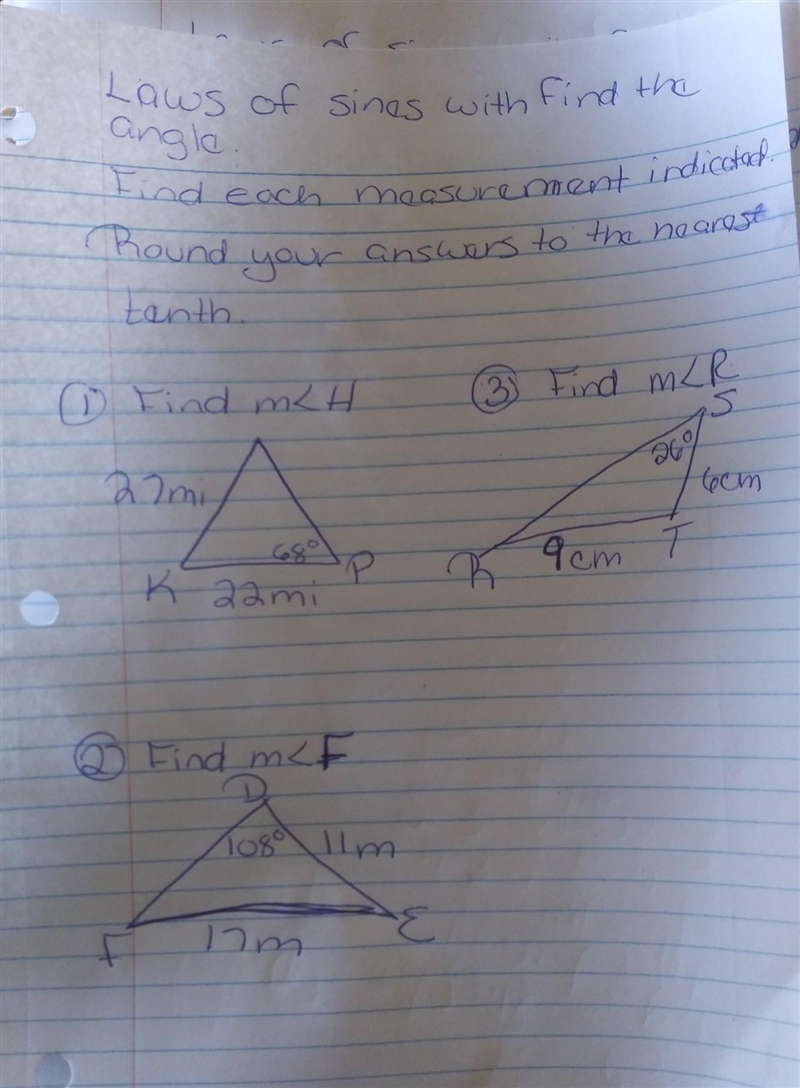 Laws of sines with find the
angle.
Find each measurement indicated.
Round your answers to the nearest
tenth.
① Find m<H
27mi
68°
K
P
22mi
③ Find m<R
S
26°
6cm
T
R
9cm
② Find m<F
D
108°
11m
F
E
17m